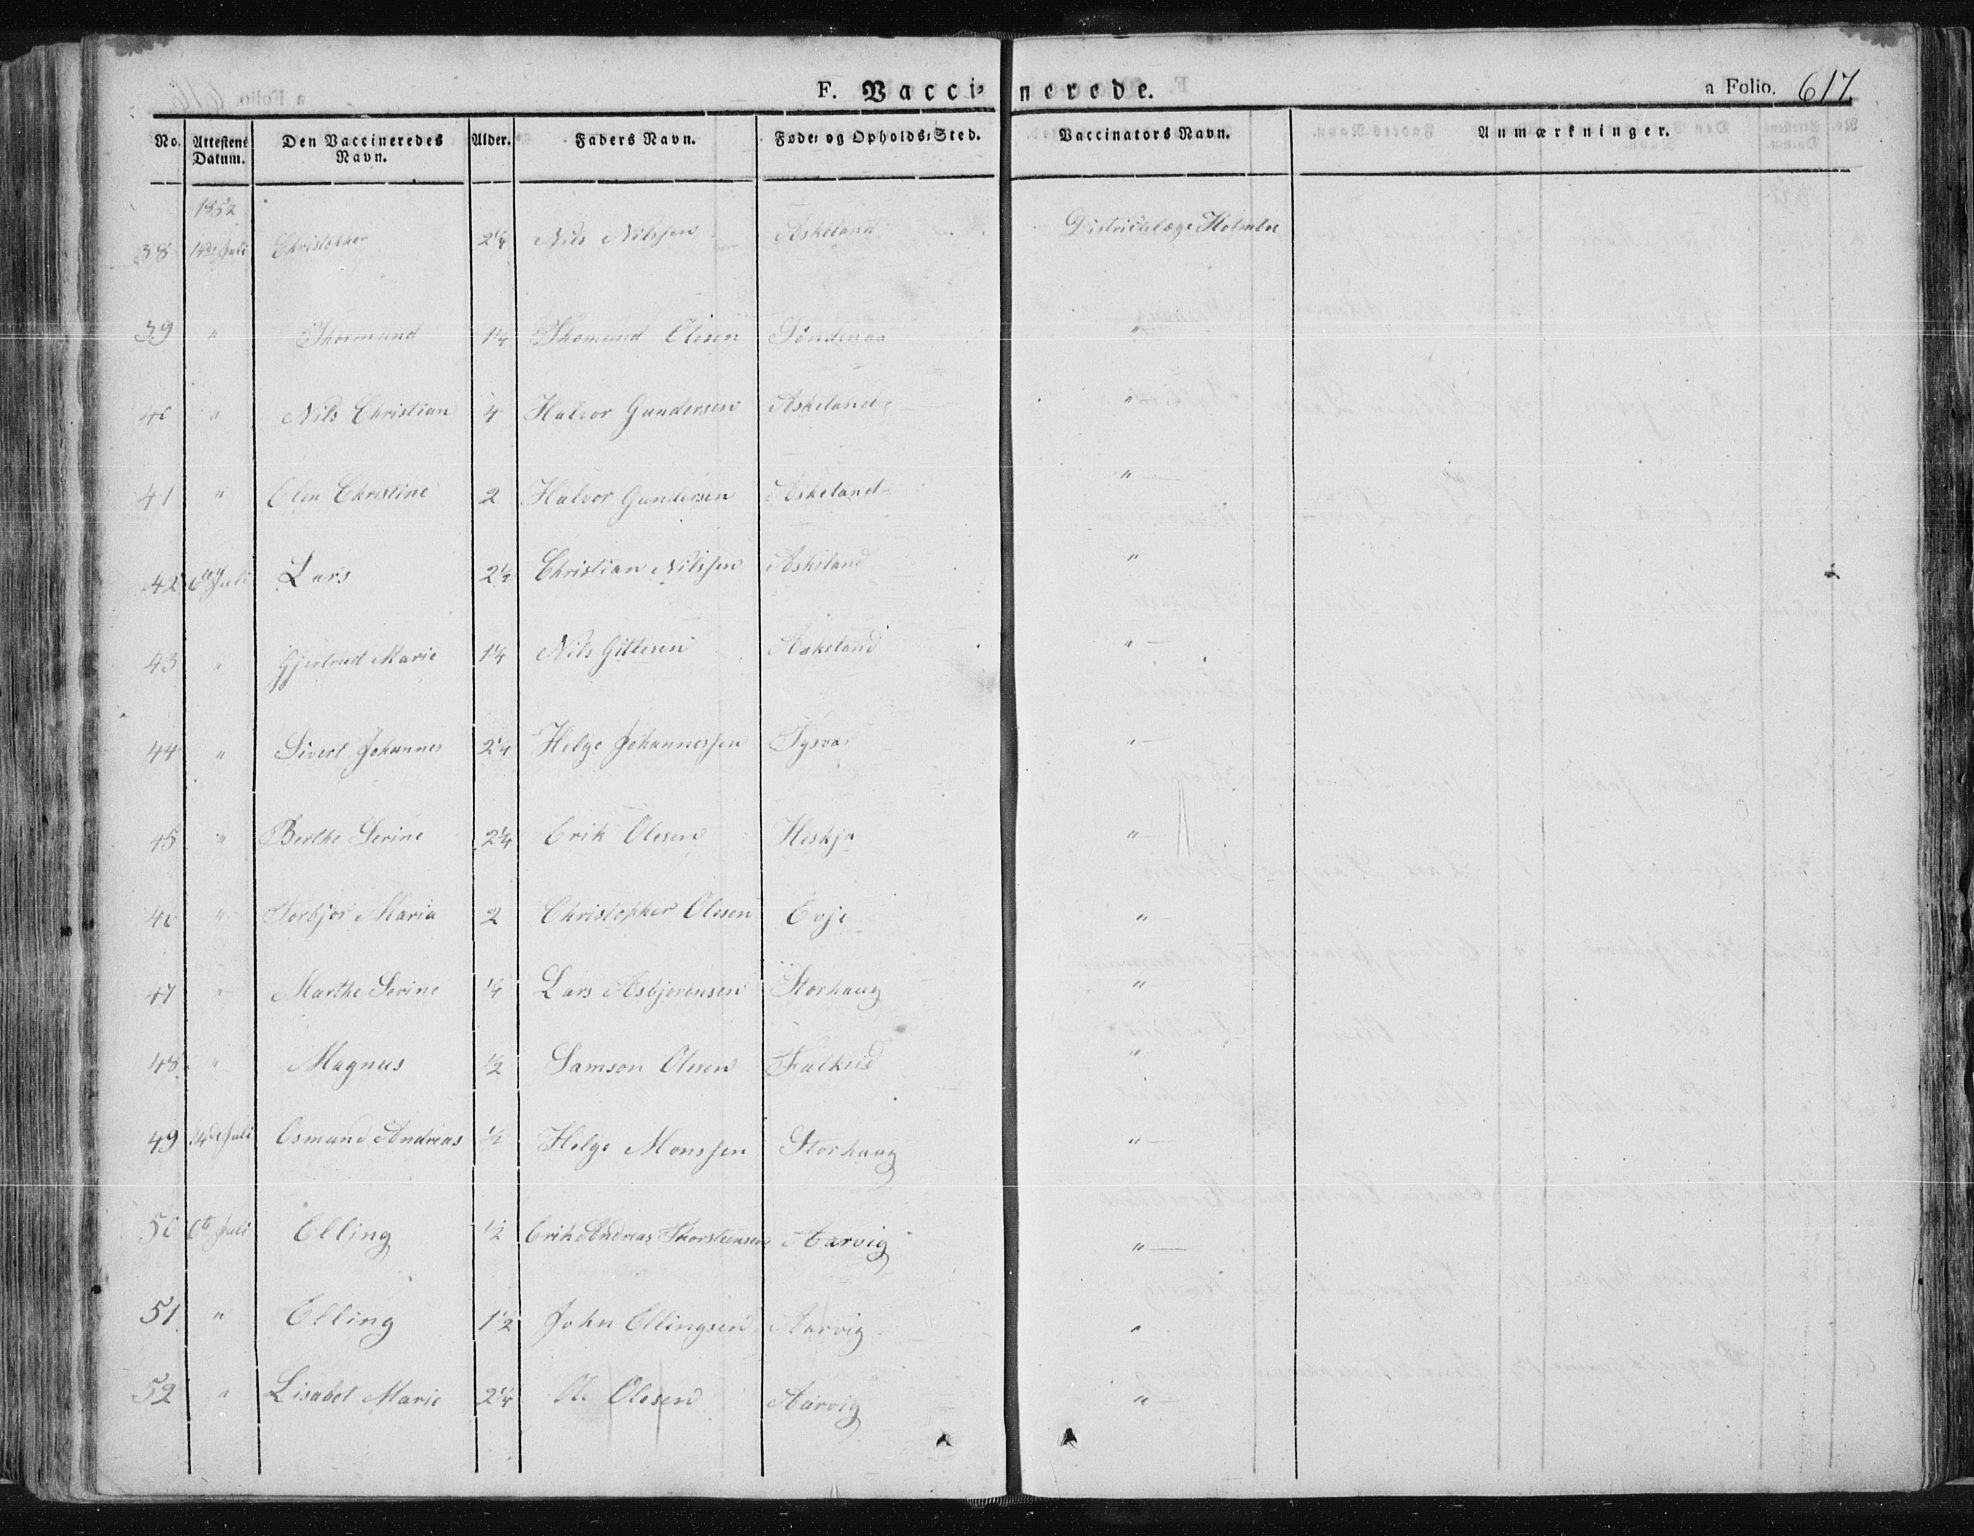 F. Vaccinerede. a Folio. 617
No. Attestens Datum. Den Vaccineredes Navn. Alder. Faders Navn. Føde- og Opholds-Sted. Vaccinators Navn. Anmærkninger.
1852
38 14de Juli Christopher 2¼ Nils Nilssen Askeland Districtslæge Holmboe
39 " Thormund 1¼ Thomund Olesen Søndenaa "
40 " Nils Christian 4 Halvor Gundersen Askeland "
41 " Olen Christine 2 Halvor Gundersen Askeland "
42 6te Juli Lars 2½ Christian Nilssen Askeland "
43 " Gjertrud Marie 1¼ Nils Gittesen Askeland "
44 " Sivert Johannes 2¼ Helge Johannessen Tysvar "
45 " Berthe Serine 2¼ Erik Olesen Heskja "
46 " Torbjor Maria 2 Christopher Olesen Evje "
47 " Marthe Serine ¼ Lars Asbjørensen Storhaug "
48 " Magnus ½ Samson Olesen Falkeid "
49 14de Juli Osmund Andreas ½ Helge Monssen Storhaug "
50 6te Juli Elling ½ Erik Andreas Thorsteensen Aarvig "
51 " Elling 1½ John Ellingsen Aarvig "
52 " Lisabet Marie 2¼ Ole Olesen Aarvig "